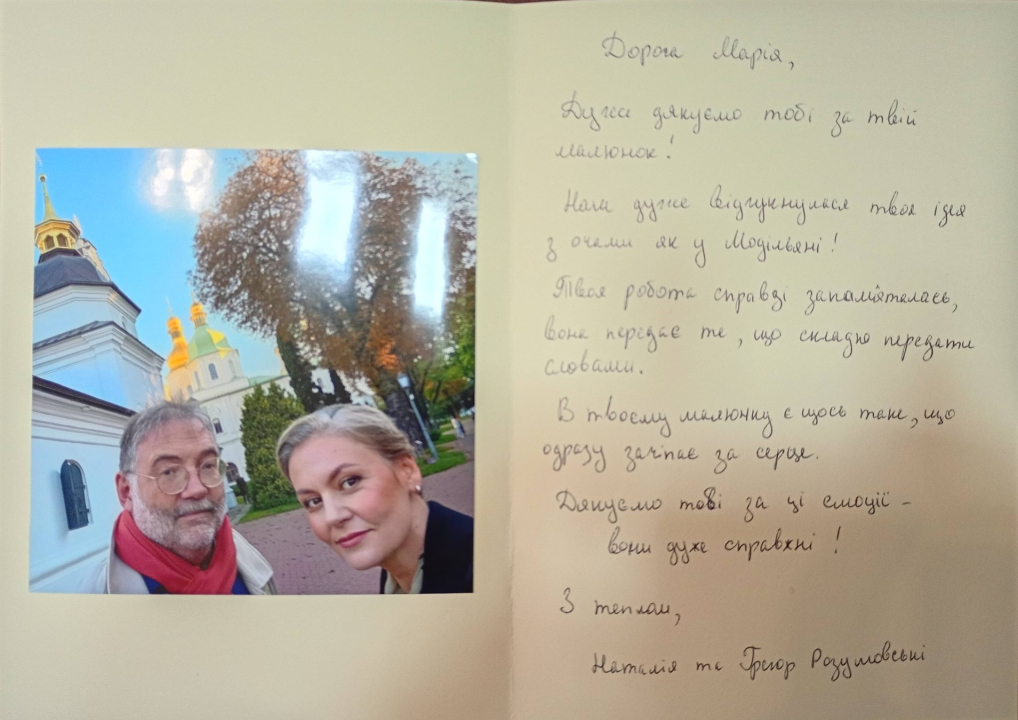 Дорога Марія,
Дуже дякуємо тобі за твій
малюнок!
Нам дуже відгукнулася твоя ідея
з очами як у Модільяні!
Твоя робота справді запам'яталась,
вона передає те, що складно передати
словами.
В твоєму малюнку є щось таке, що
одразу зачіпає за серце.
Дякуємо тобі за ці емоції –
вони дуже справжні!
З теплом,
Наталія та Грегор Розумовські